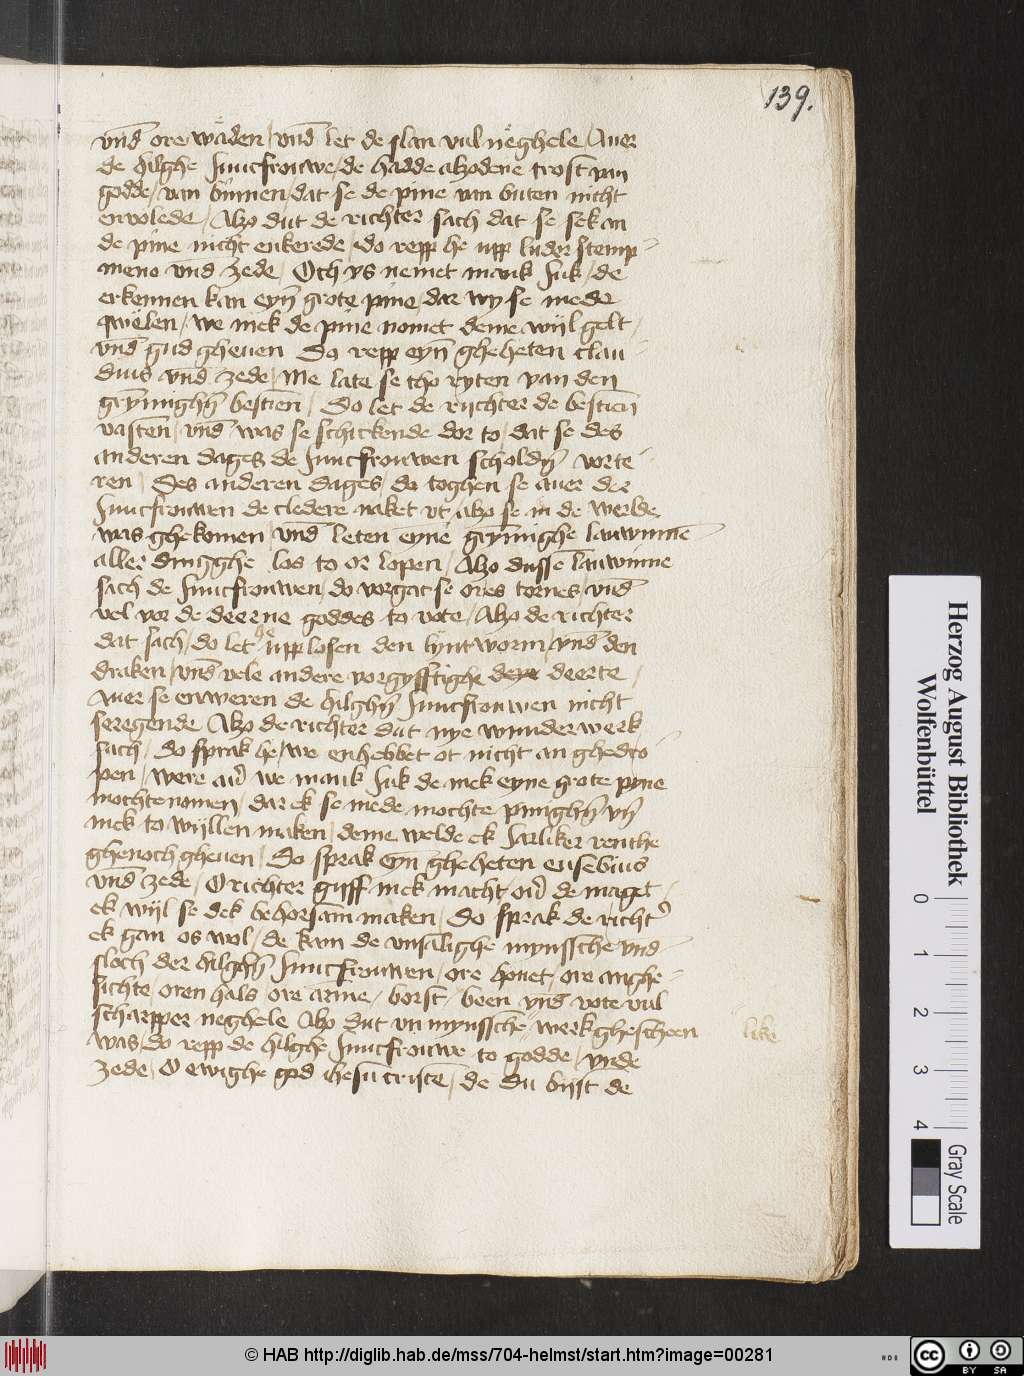 139.
vnd ore waͤden / vnd let de slan vul neͤghele / Auer
de hilghe Juncfrouwe / de hadde alzodene trost van
godde / van bynnen / dat se de pine van buten nicht
envolede / Alzo dut de richter sach dat se sek an
de pine nicht enkerede / do repp he upp luder stemp-
meno vnd zede / Och ys nemet mank Juk / de
erkennen kan eyn grote pine / dar wy se mede
qwelen / we mek de pine nomet deme wijl gelt /
vnd gud gheuen Do repp eyn gheheten clau-
dius vnd zede / Me late se tho ryten van den
grymighn bestien / Do let de rijchter de bestien
vasten / vnd was se schickende dor to / dat se des
anderen dages de Juncfrouwen scholdn vorte-
ren / Des anderen dages / do toghen se auer der
Juncfrouwen de cledere naket vt alzo se in de werlde
was ghekomen / vnd leten eyne grymighe lauwinne
aller dingghe los to or lopen / Alzo dusse lauwinne
sach de Juncfrouwen / do vorgat se ores tornes / vnd
vel vor de deerne goddes to vote / Alzo de richter
dat sach / do let he upp losen den lyntworm / vnd den
draken / vnd vele andere vorgyfftighe deerte /
Auer se enweren de hilghn Juncfrouwen nicht
seregende Alzo de richter dat nye wunderwerk
sach / do sprak he / we enhebbet ot nicht an ghedro-
pen / were au we mank Juk de mek eyne grote pyne
mochte nomen / dar ek se mede mochte pinighn vn
mek to wyllen maken / deme welde ek Jarliker renthe
ghenoch gheuen / Do sprak eyn gheheten eusebius
vnd zede / O richter gyff mek macht ou de maget /
ek wijl se dek behorsam maken / Do sprak de richt
ek gan os wol / de kam de vnsalighe mynssche vnd
sloch der hilghn Juncfrouwen / ore houet / ore anghe-
sichte / oren hals ore arme / borst / been vnd vote vul
scharpper neghele Alzo dut vn mynssche werk ghescheen
like
was / do repp de hilghe Juncfrouwe to godde / vnde
zede / O ewighe god ihesu criste / de du bijst de
Herzog August Bibliothek
Wolfenbüttel
0 1 2 3 4
Gray Scale
© HAB http://diglib.hab.de/mss/704-helmst/start.htm?image=00281
HAB
cc BY SA